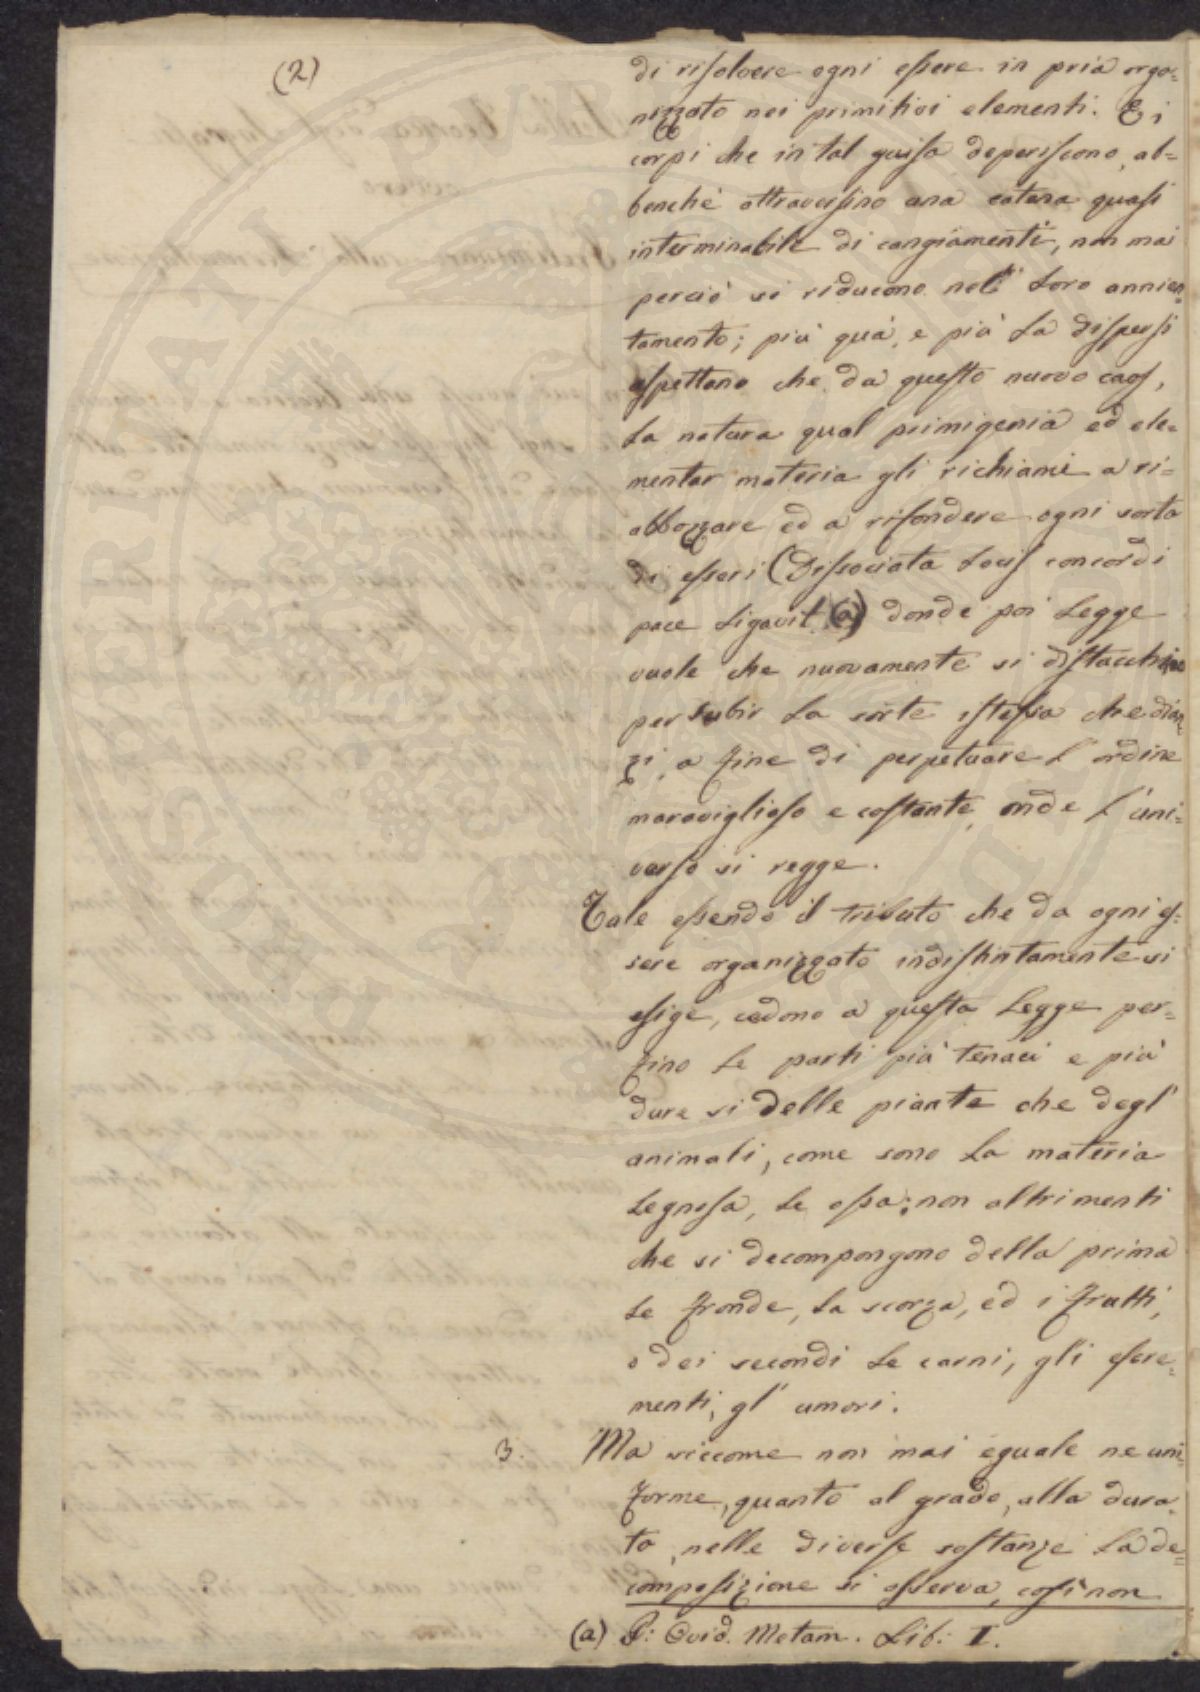 (2)
di risolvere ogni essere in prià orga-
nizzato nei primitivi elementi. E i
corpi che in tal guisa deperiscono, ab-
benchè attraversino una catena quasi
interminabile di cangiamenti, non mai
perciò si riducono nel loro annien-
tamento; più quà, e più là dispersi
aspettano che da questo nuovo caos,
la natura qual primigenia ed ele-
mentar materia gli richiami a ri-
abbozzare ed a rifondere ogni sorta
di esseri (Dissociata locis concordi
pace ligavit (a) donde poi legge
vuole che nuovamente si distacchino
per subir la sorte istessa che dian-
zi, a fine di perpetuare l'ordine
maraviglioso e costante, onde l'uni-
verso si regge.
Tale essendo il tributo che da ogni es-
sere organizzato indistintamente si
esige, cedono a questa legge per-
fino le parti più tenaci e più
dure si delle piante che degl'
animali, come sono la materia
legnosa, le ossa; non altrimenti
che si decompongono della prima
le fronde, la scorza, ed i frutti,
o dei secondi le carni, gli escre-
menti, gl' umori.
3. Ma siccome non mai eguale ne uni-
forme, quanto al grado, alla dura-
ta, nelle diverse sostanze la de-
composizione si osserva, così non
(a) P: Ovid. Metam. Lib: I.